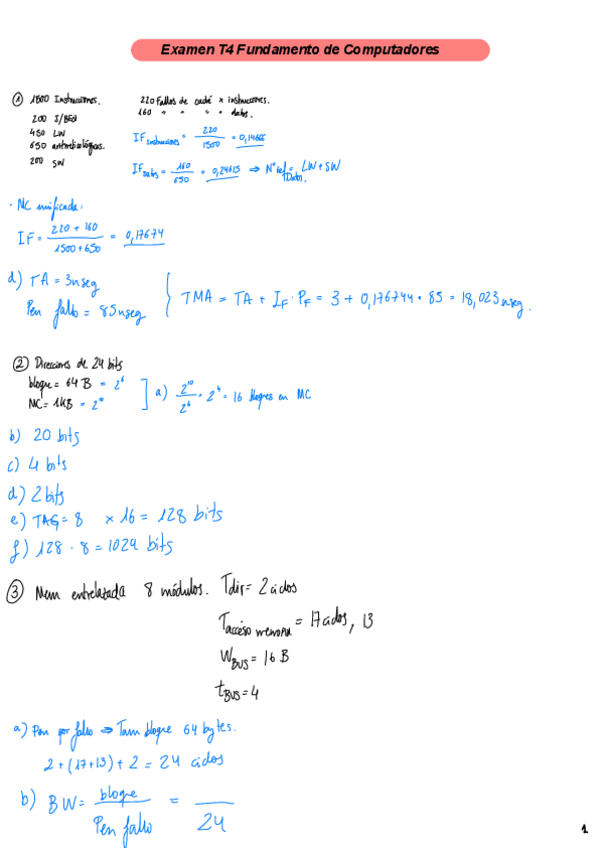 Examen T4 Fundamento de Computadores
① 1500 Instrucciones. 220 Fallos de caché x instrucciones.
200 I/BEQ 160 " " " " datos.
450 LW
650 aritmeticológicas.
200 SW
IF instrucciones = 220 / 1500 = 0,14666
IF datos = 160 / 650 = 0,24615 ⇒ Nº ref Datos = LW + SW
· MC unificada:
IF = 220 + 160 / 1500 + 650 = 0,17674
d) TA = 3nseg
Pen fallo = 85nseg
TMA = TA + IF · PF = 3 + 0,176744 · 85 = 18,023nseg.
② Direcciones de 24 bits
bloque = 64 B = 2^6
MC = 1KB = 2^10
a) 2^10 / 2^6 = 2^4 = 16 bloques en MC
b) 20 bits
c) 4 bits
d) 2 bits
e) TAG = 8 x 16 = 128 bits
f) 128 · 8 = 1024 bits
③ Mem entrelazada 8 módulos. Tdir = 2 ciclos
Tacceso memoria = 17 ciclos, 13
WBUS = 16 B
tBUS = 4
a) Pen por fallo ⇒ Tam bloque 64 bytes.
2 + (17+13) + 2 = 24 ciclos
b) BW = bloque / Pen fallo = / 24
1